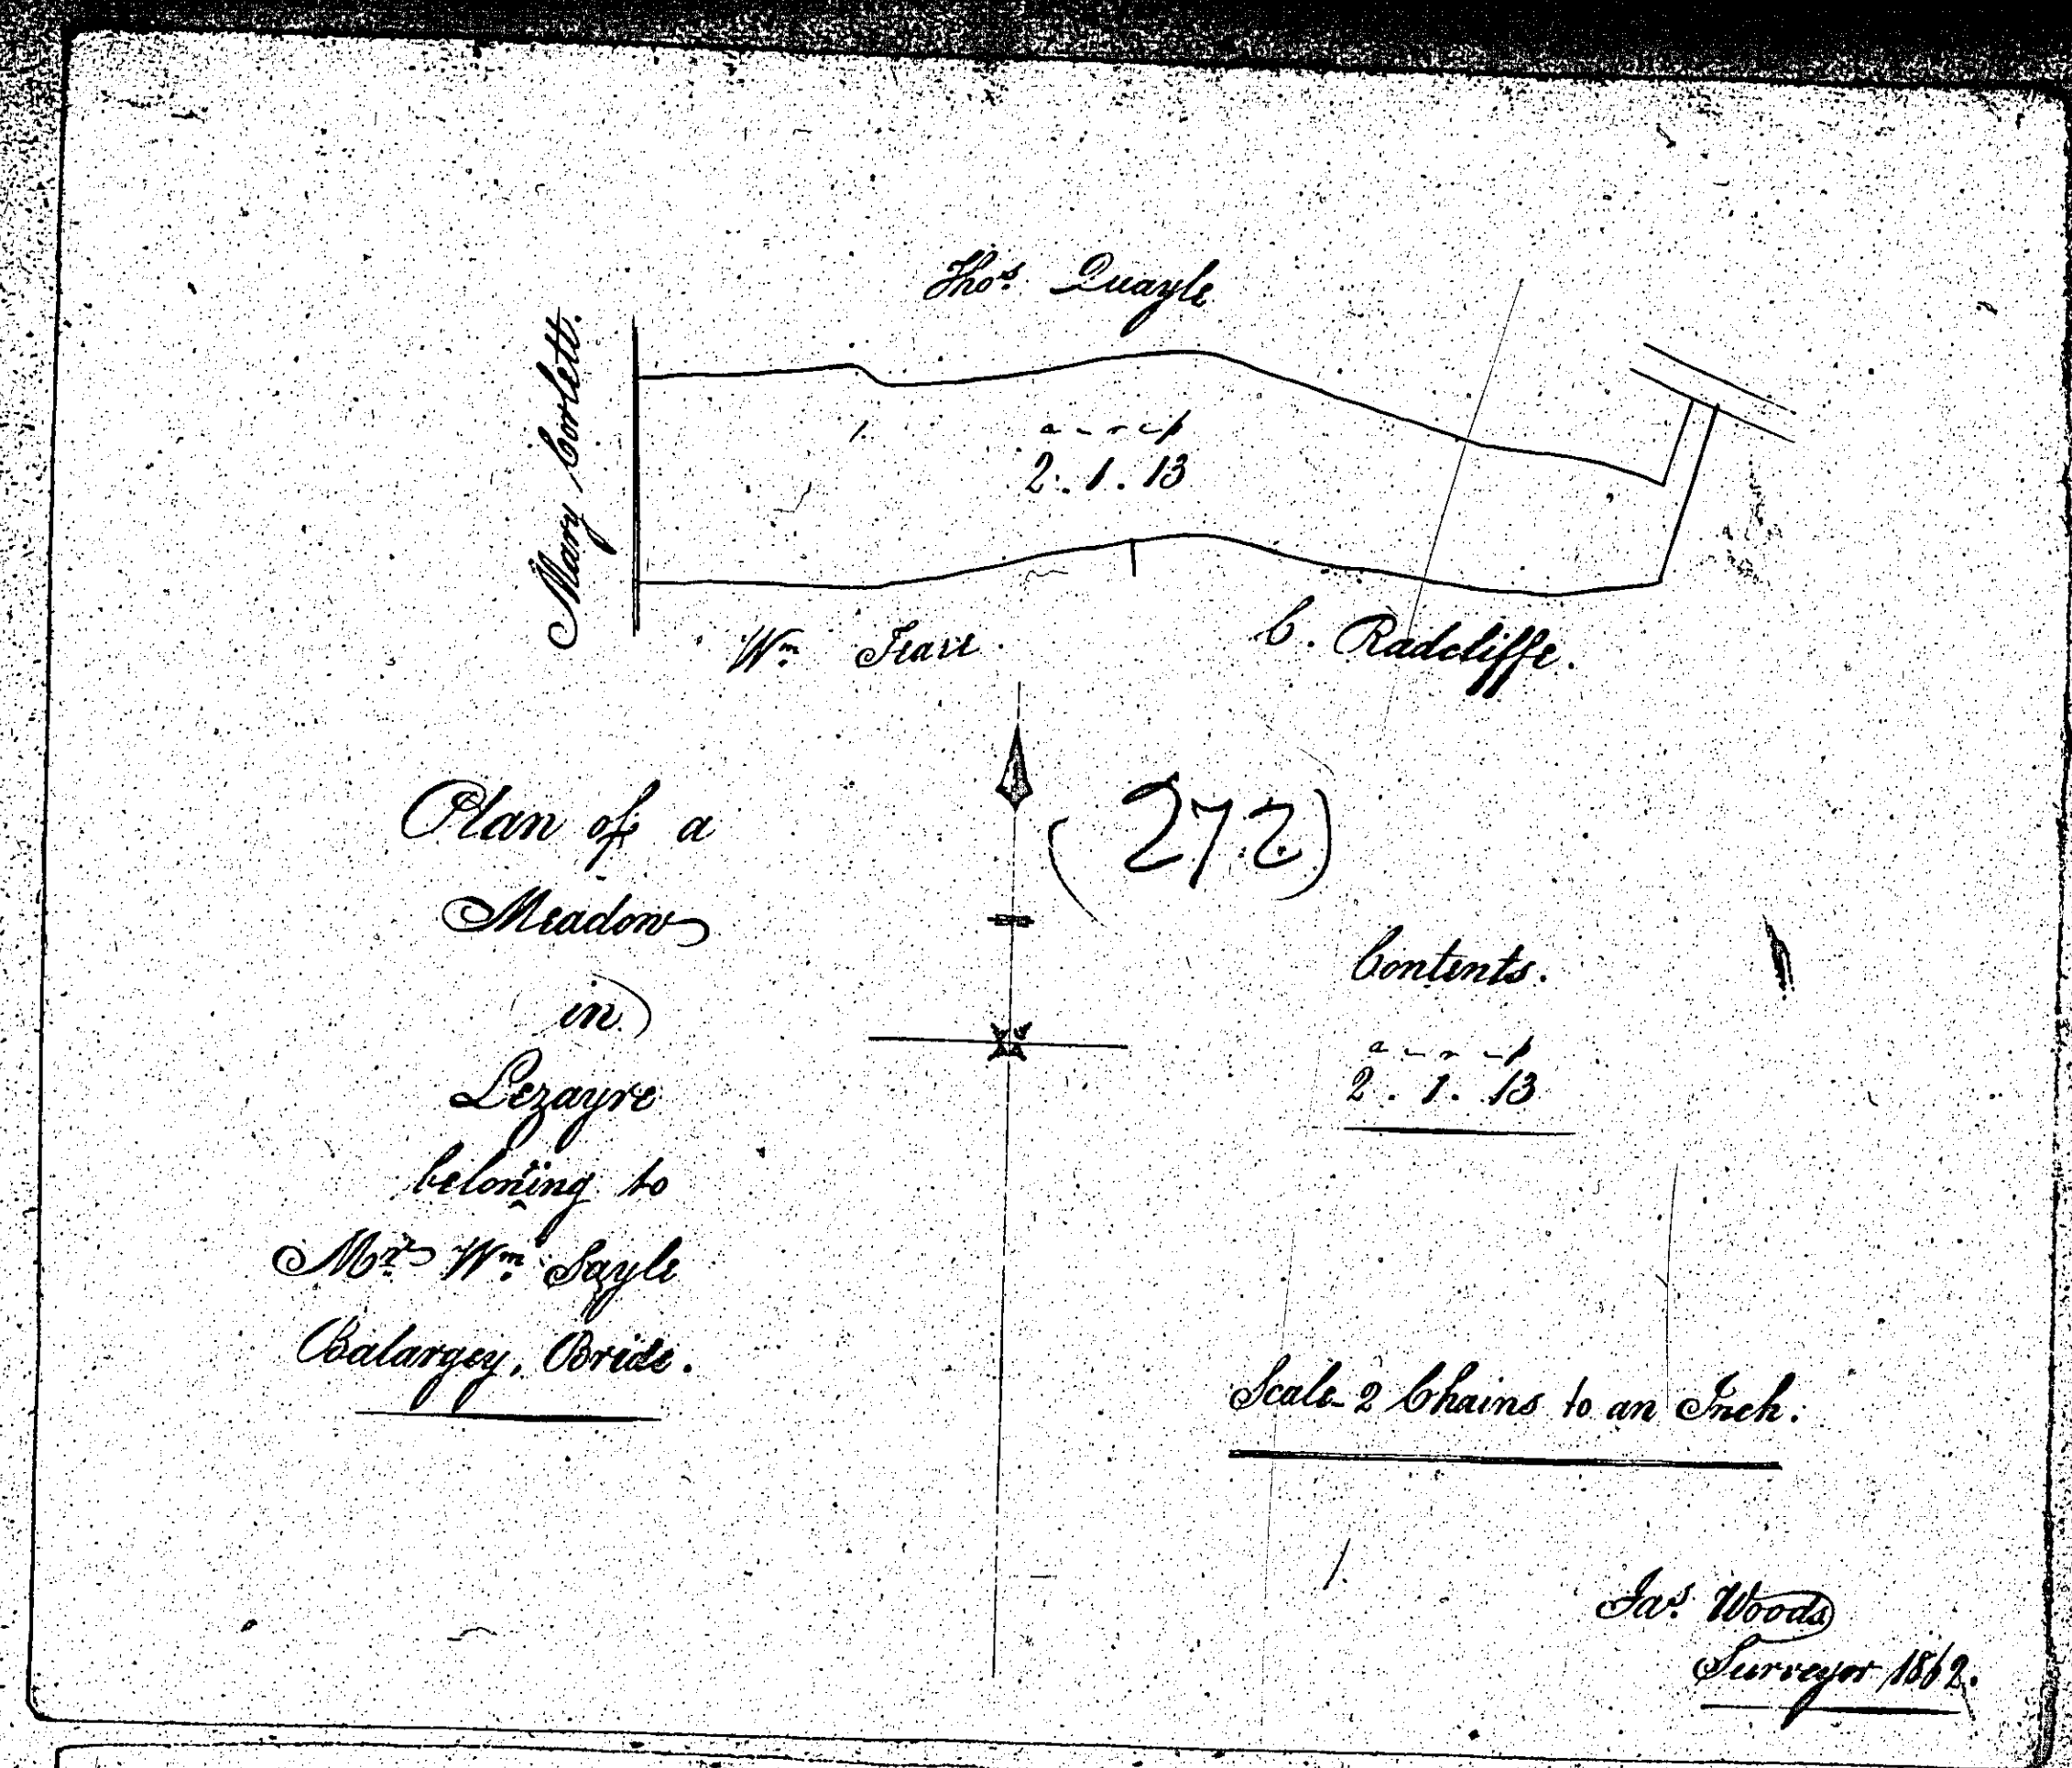 Thos. Quayle
Mary Corlett.
a - r - p
2. 1. 13
Wm Teare
C. Radcliffe.
Plan of a
Meadow
in
Lezayre
beloning to
Mr. Wm. Sayle
Balargey, Bride.
(272)
Contents.
a - r - p
2. 1. 13
Scale - 2 Chains to an Inch.
Jas. Woods
Surveyor 1862.